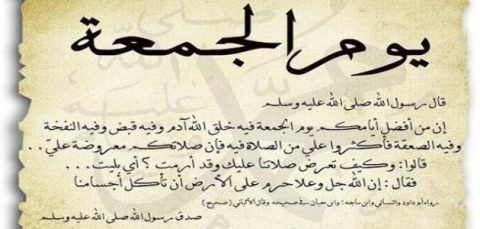 يوم الجمعة
قال رسول الله صلى الله عليه وسلم
إن من أفضل أيامكم يوم الجمعة فيه خلق الله آدم وفيه قبض وفيه النفخة
وفيه الصعقة فأكثروا علي من الصلاة فيه فإن صلاتكم معروضة علي..
قالوا: وكيف تعرض صلاتنا عليك وقد أرمت ؟ أي بليت...
فقال : إن الله جل وعلا حرم على الأرض أن تأكل أجسامنا
رواه أبو داود والنسائي وابن ماجه ؛ وابن حبان في صحيحه وقال الألباني ( صحيح )
صدق رسول الله صلى الله عليه وسلم